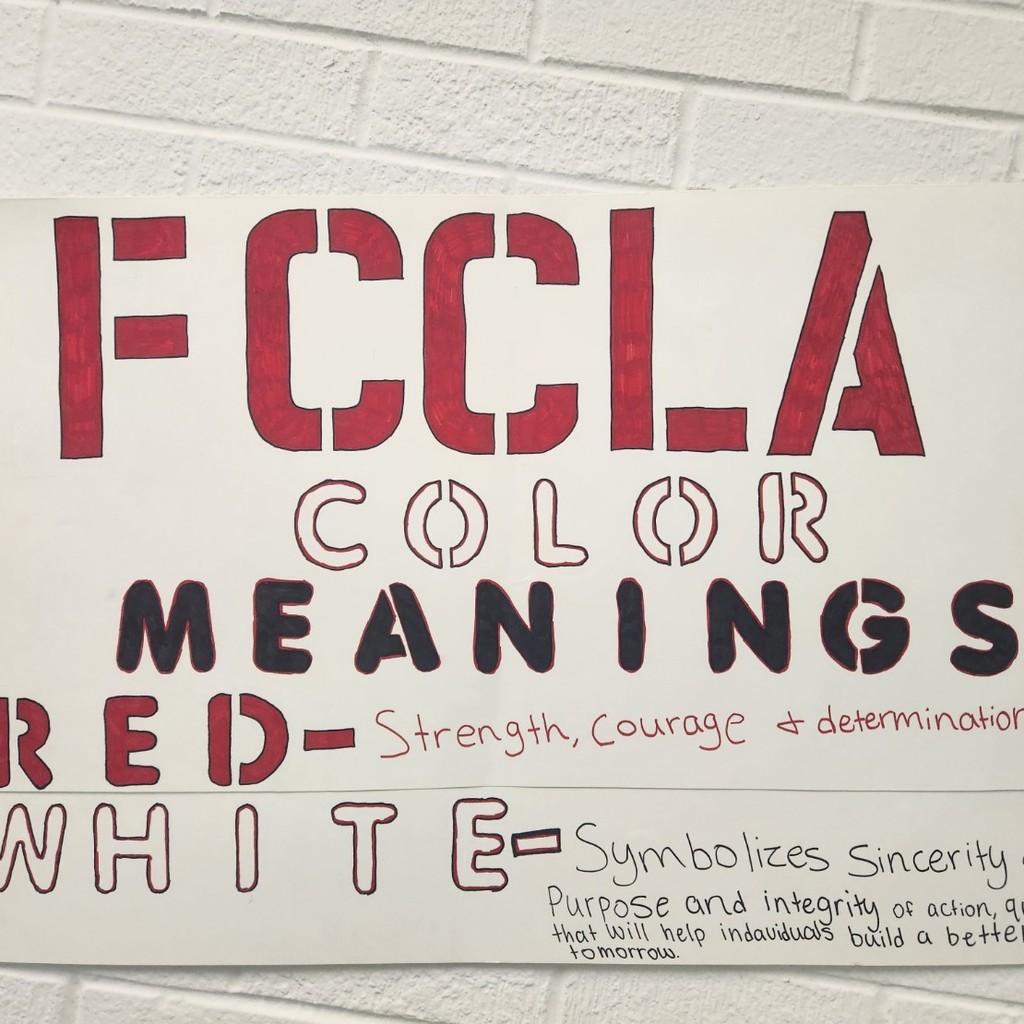 FCCLA
COLOR
MEANINGS
RED- Strength, courage & determination
WHITE- Symbolizes Sincerity
Purpose and integrity of action,
that will help indaviduals build a better
tomorrow.